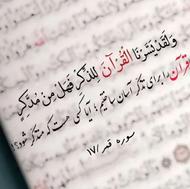 وَلَقَدْ يَسَّرْنَا الْقُرْآنَ لِلذِّكْرِ فَهَلْ مِنْ مُدَّكِرٍ
قرآن را برای تذکر آسان ساختیم؛ آیا کسی هست که متذکر شود؟!
سوره قمر /۱۷